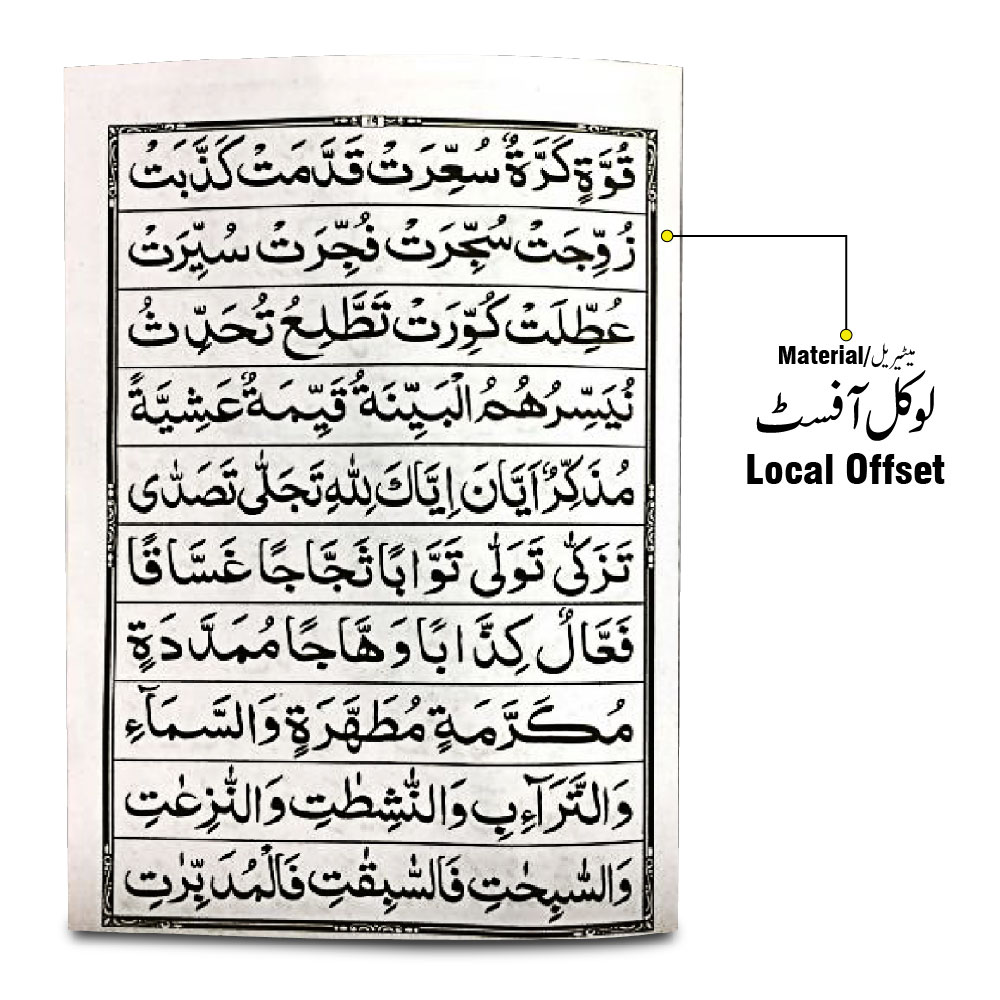 ١٩
قُوَّةٍ كَرَّةٌ سُعِّرَتْ قَدَّمَتْ كَذَّبَتْ
زُوِّجَتْ سُجِّرَتْ فُجِّرَتْ سُيِّرَتْ
عُطِّلَتْ كُوِّرَتْ تَطَّلِعُ تُحَدِّثُ
نُيَسِّرُ هُمُ الْبَيِّنَةُ قَيِّمَةٌ عَشِيَّةً
مُذَكِّرٌ اَيَّانَ اِيَّاكَ لِلّٰهِ تَجَلّٰى تَصَدّٰى
تَزَكّٰى تَوَلّٰى تَوَّابًا ثَجَّاجًا غَسَّاقًا
فَعَّالٌ كِذَّابًا وَهَّاجًا مُمَدَّدَةٍ
مُكَرَّمَةٍ مُطَهَّرَةٍ وَالسَّمَآءِ
وَالتَّرَآءِبِ وَالنّٰشِطٰتِ وَالنّٰزِعٰتِ
وَالسّٰبِحٰتِ فَالسّٰبِقٰتِ فَالْمُدَبِّرٰتِ
Material/میٹیریل
لوکل آفسٹ
Local Offset